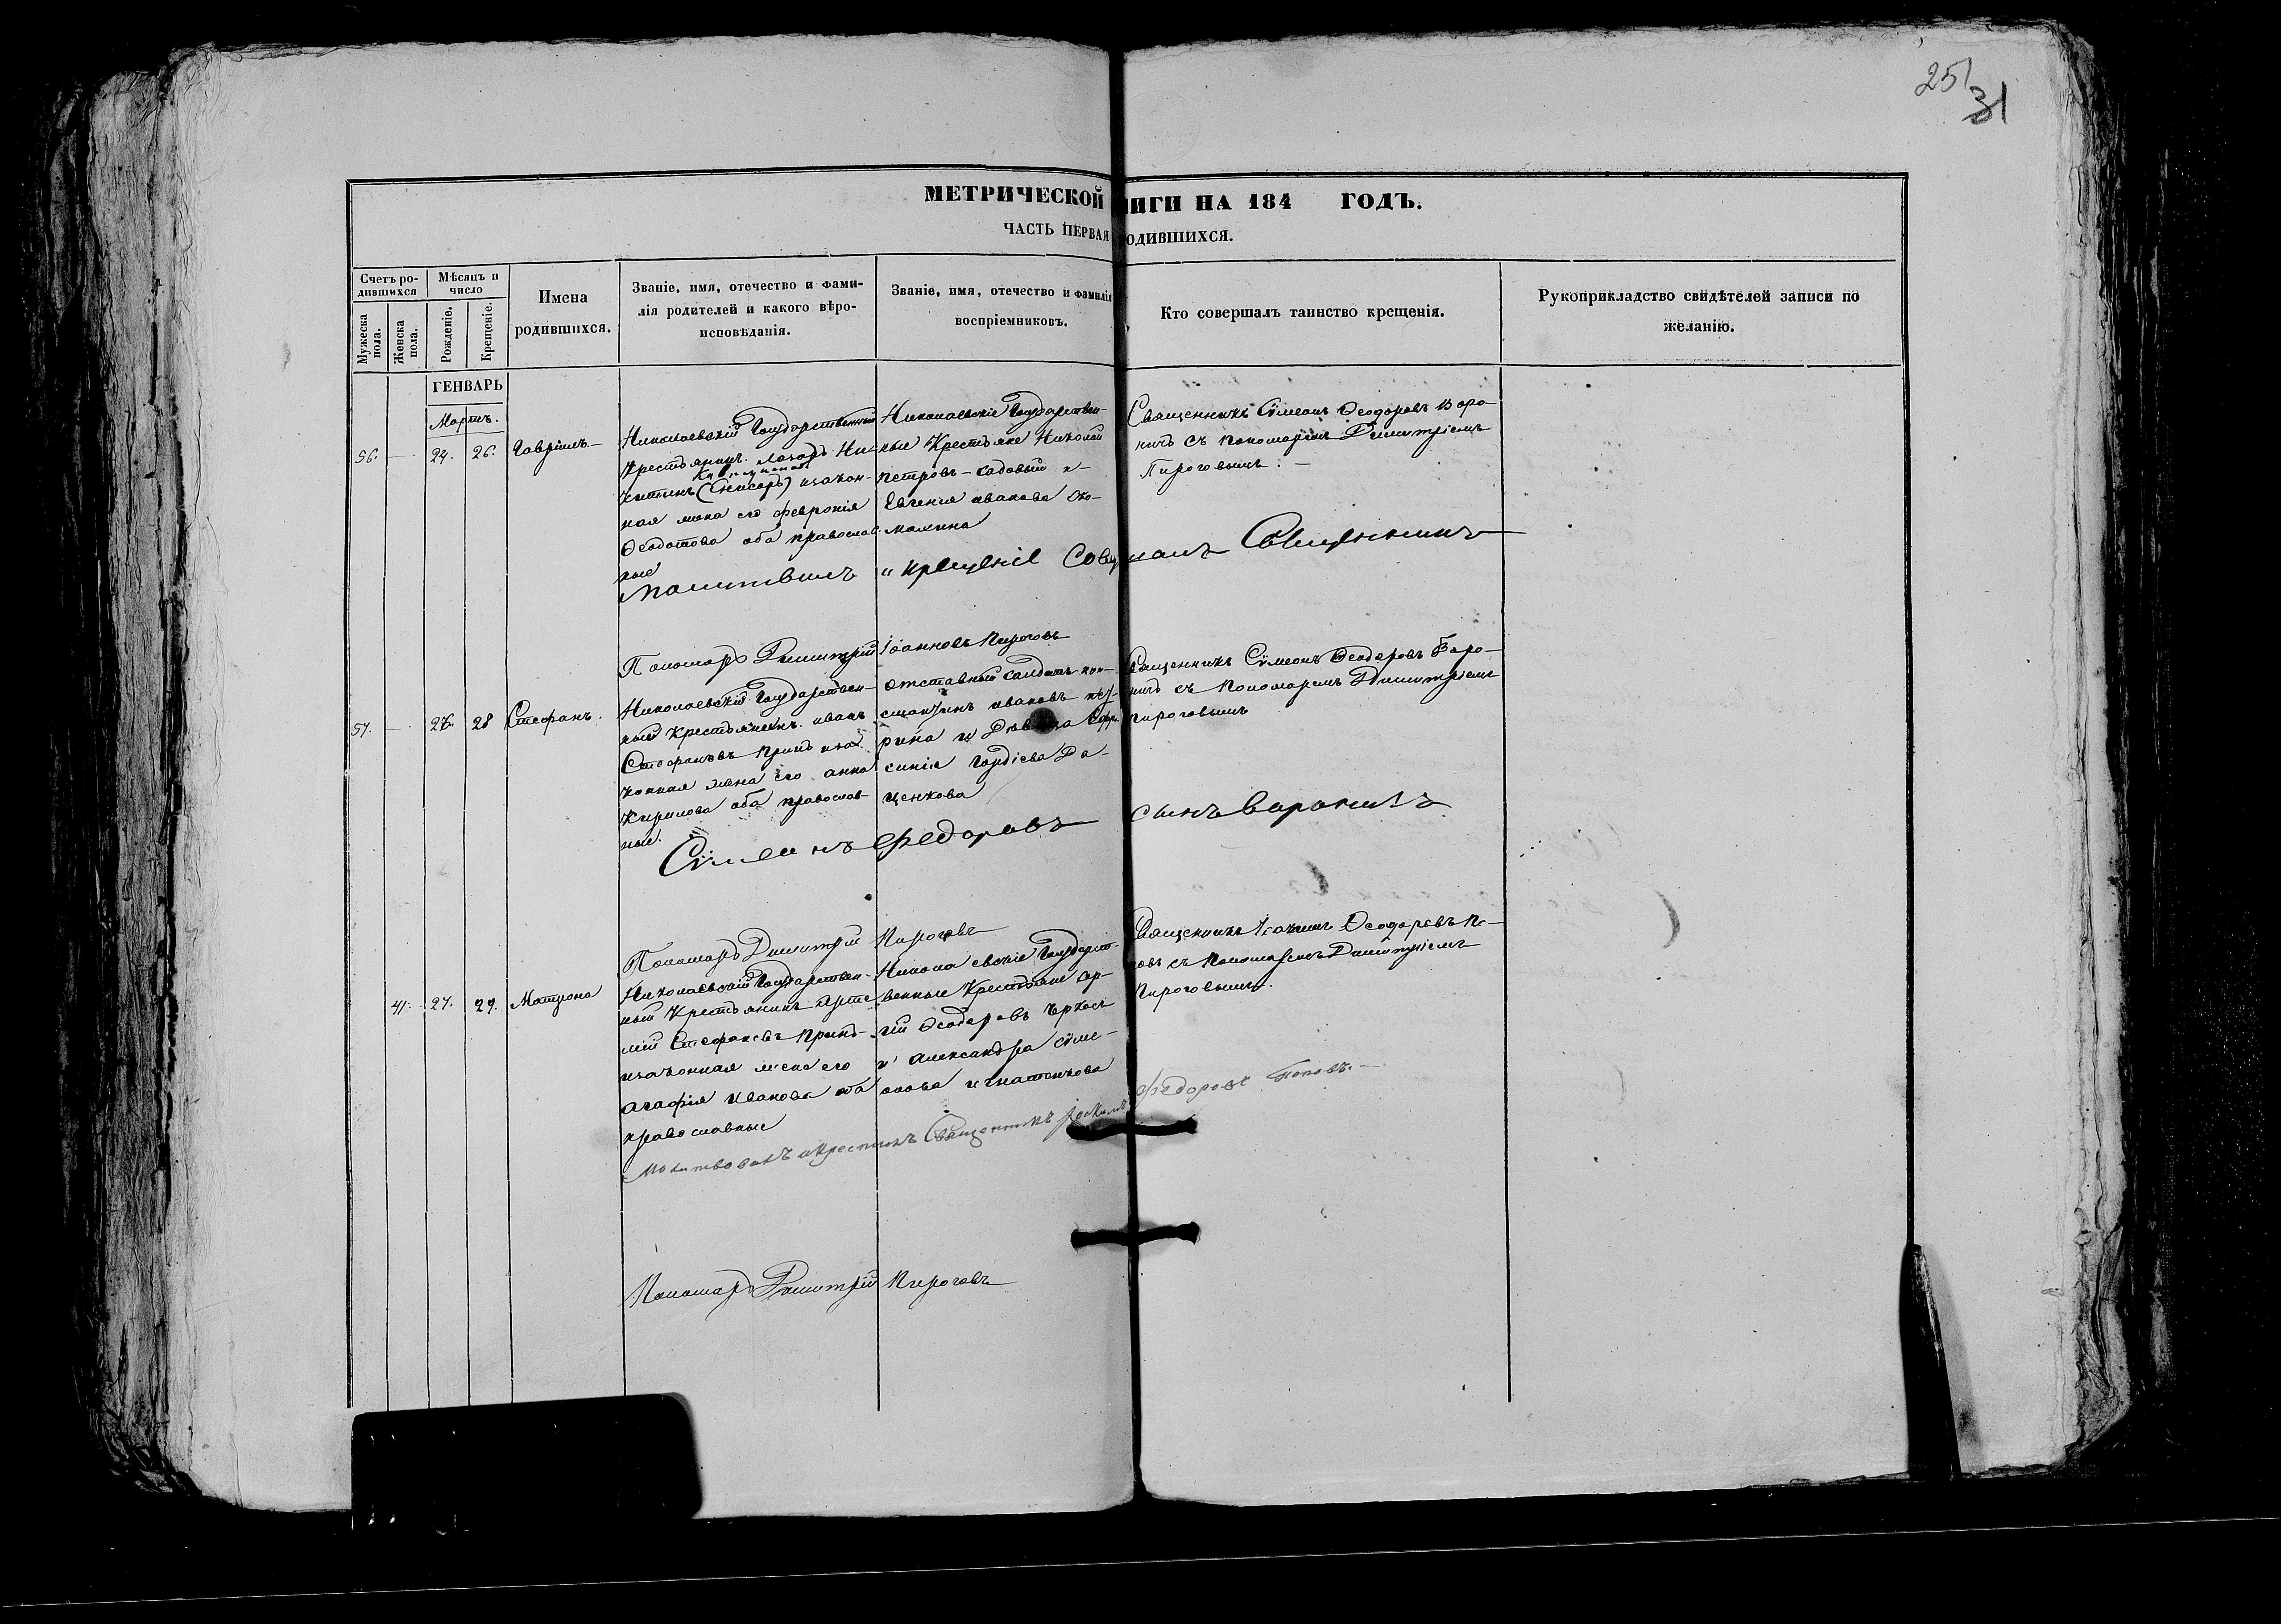 251
31
МЕТРИЧЕСКОЙ ИГИ НА 184 ГОДЪ.
ЧАСТЬ ПЕРВАЯ ОДИВШИХСЯ.
Счетъ ро-
дившихся
Мужеска пола.
Женска пола.
Мѣсяцъ и
число
Рожденіе.
Крещеніе.
Имена
родившихся.
Званіе, имя, отечество и фами-
лія родителей и какого вѣро-
исповѣданія.
Званіе, имя, отечество и фамилія
воспріемниковъ.
Кто совершалъ таинство крещенія.
Рукоприкладство свидѣтелей записи по
желанію.
ГЕНВАРЬ
Мартъ.
56. — 24. 26. Гавріилъ —
Николаевскій Государственный
Крестьянинъ Лазарь Ни-
китинъ изакон-
ная жена его Февронія
Ѳеодотова оба православ-
ные
Николаевскіе Государствен-
ные Крестьяне Николай
Петровъ Садовый и
Евгенія иванова
Священникъ Сѵмеонъ Ѳеодоровъ Воро-
ничь съ Пономаремъ Димитріемъ
Пироговымъ. —
Молитвилъ и крещеніе Священникъ
Пономарь Димитрій Іоанновъ Пироговъ
57. — 26. 28 Стефанъ.
Николаевскій Государствен-
ный Крестьянинъ иванъ
Стефановъ Принь иза-
конная жена его анна
Кирилова оба православ-
ные.
отставный Салдатъ кон-
стантинъ ивановъ
рина и
синія Гордіева Да-
ценкова
Священникъ Сѵмеонъ Ѳеодоровъ Воро-
ничь съ Пономаремъ Димитріемъ
Пироговымъ
Сѵмеонъ Федоровъ сынъ Вороничъ
Пономарь Димитрій Пироговъ
41. 27. 29. Матрона
Николаевскій Государствен-
ный Крестьянинъ Арте-
мій Стефановъ Принь
изаконная жена его
агафія Иванова оба
православные
Николаевскіе Государст-
венные Крестьяне
Ѳеодоровъ
и Александра Сѵме-
онова игнатенкова
Священникъ Іоакимъ Ѳеодоровъ По-
овъ съ Пономаремъ Димитріемъ
Пироговымъ.
Молитвовалъ икрестилъ Священникъ Іоакимъ Федоровъ Поповъ. —
Пономарь Димитрій Пироговъ